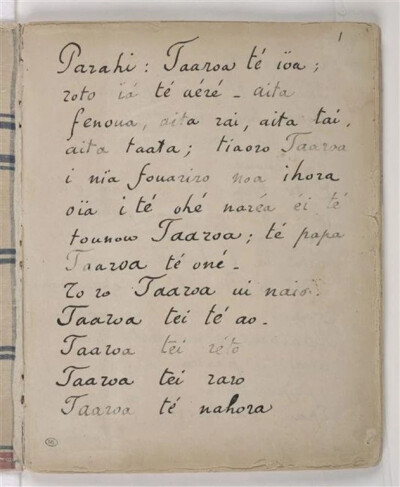 1
Parahi : Taaroa té ïoa ;
roto ïá té aéré _ aita
fenoua, aita rai, aita tai,
aita taata ; tiaoro Taaroa
i nïa fouariro noa ihora
oïa i té ohé naréa éi té
tounoun Taaroa ; té papa
Taaroa té oné _
To ro Taaroa ui naio.
Taaroa tei té ao _
Taaroa tei réto
Taaroa tei raro
Taaroa té nahora